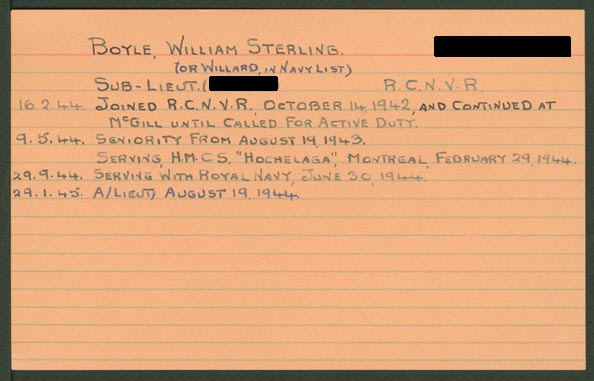 BOYLE, WILLIAM STERLING.
(OR WILLARD, IN NAVY LIST)
SUB-LIEUT. ( R.C.N.V.R.
16.2.44. JOINED R.C.N.V.R., OCTOBER 14, 1942, AND CONTINUED AT
McGILL UNTIL CALLED FOR ACTIVE DUTY.
9.5.44. SENIORITY FROM AUGUST 19, 1943.
SERVING, H.M.C.S. "HOCHELAGA", MONTREAL, FEBRUARY 29, 1944.
29.9.44. SERVING WITH ROYAL NAVY, JUNE 30, 1944.
29.1.45. A/LIEUT, AUGUST 19, 1944.